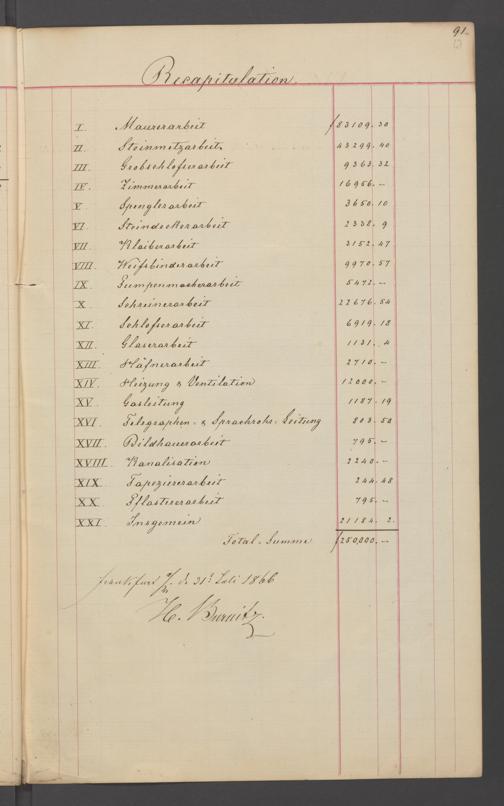 91.
Recapitulation.
I. Maurerarbeit f 83109. 30
II. Steinmetzarbeit 43299. 40
III. Grobschlosserarbeit 9363. 32
IV. Zimmerarbeit 16956. –
V Spenglerarbeit 3650. 10
VI Steindeckerarbeit 2338. 9
VII Kleiberarbeit 3152. 47
VIII. Weissbinderarbeit 9970. 57
IX. Pumpenmacherarbeit 5472. –
X. Schreinerarbeit 22676. 54
XI. Schlosserarbeit 6919. 18
XII. Glaserarbeit 1131. 4
XIII. Häfnerarbeit 2710. –
XIV. Heizung & Ventilation 12000. –
XV. Gasleitung 1187. 19
XVI. Telegraphen- & Sprachrohr-Leitung 803. 50
XVII. Bildhauerarbeit 795. –
XVIII. Kanalisation 2240. –
XIX. Tapeziererarbeit 244. 48
XX. Pflastererarbeit 795. –
XXI. Insgemein 21184. 2.
Total-Summe f 250,000. –
Frankfurt a/M. d. 31t Juli 1866
H.